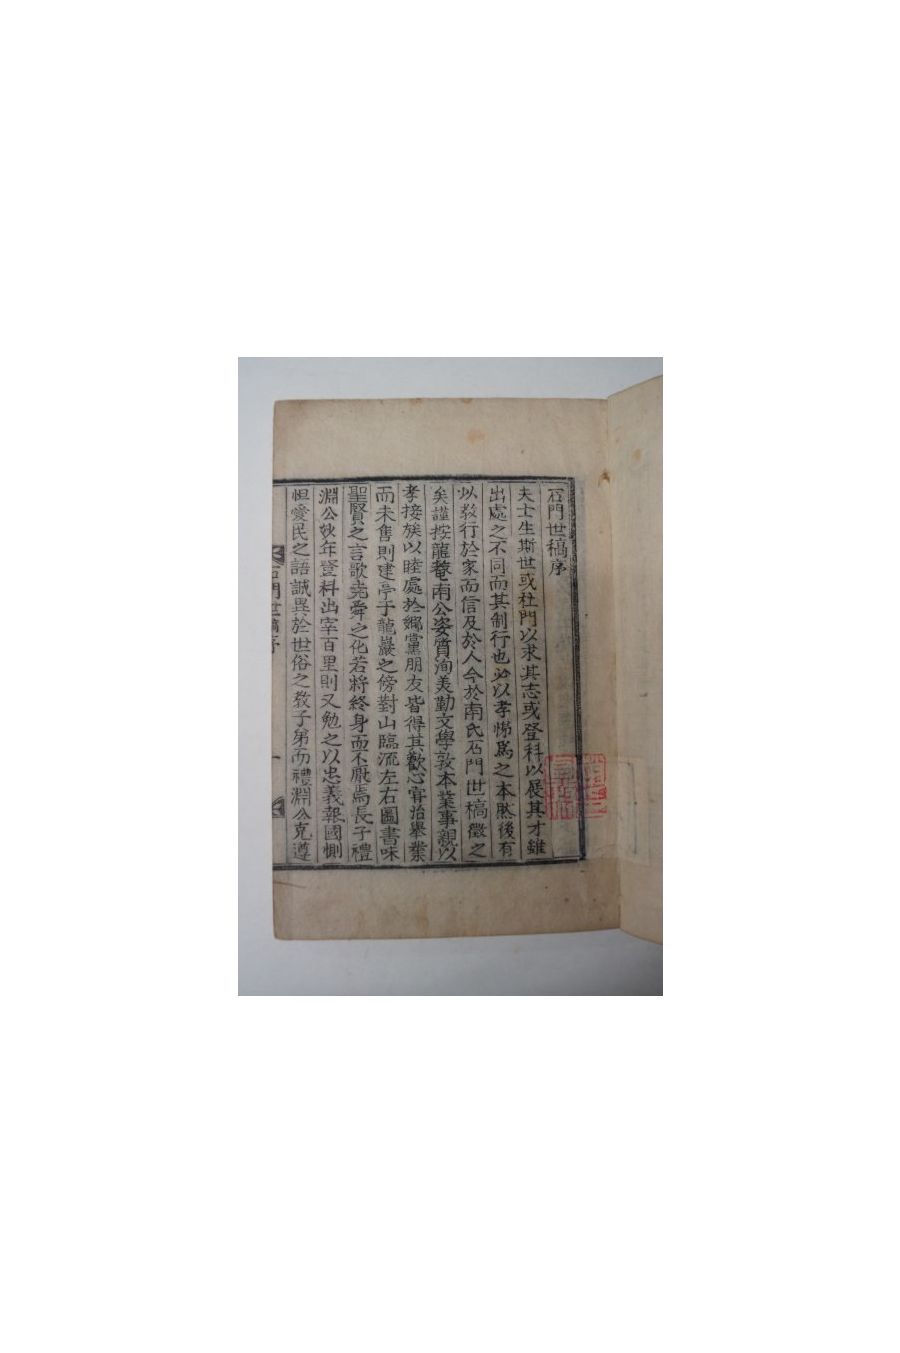 石門世稿序
夫士生斯世或杜門以求其志或登科以展其才雖
出處之不同而其制行也必以孝悌爲之本然後有
以敎行於家而信及於人今於南氏石門世稿徵之
矣謹按龍菴南公姿質洵美勤文學敦本業事親以
孝接族以睦處於鄕黨朋友皆得其歡心甞治擧業
而未售則建亭于龍巖之傍對山臨流左右圖書味
聖賢之言歌堯舜之化若將終身而不厭焉長子禮
淵公妙年登科出宰百里則又勉之以忠義報國惻
怛愛民之語誠異於世俗之敎子弟而禮淵公克遵
石門世稿序